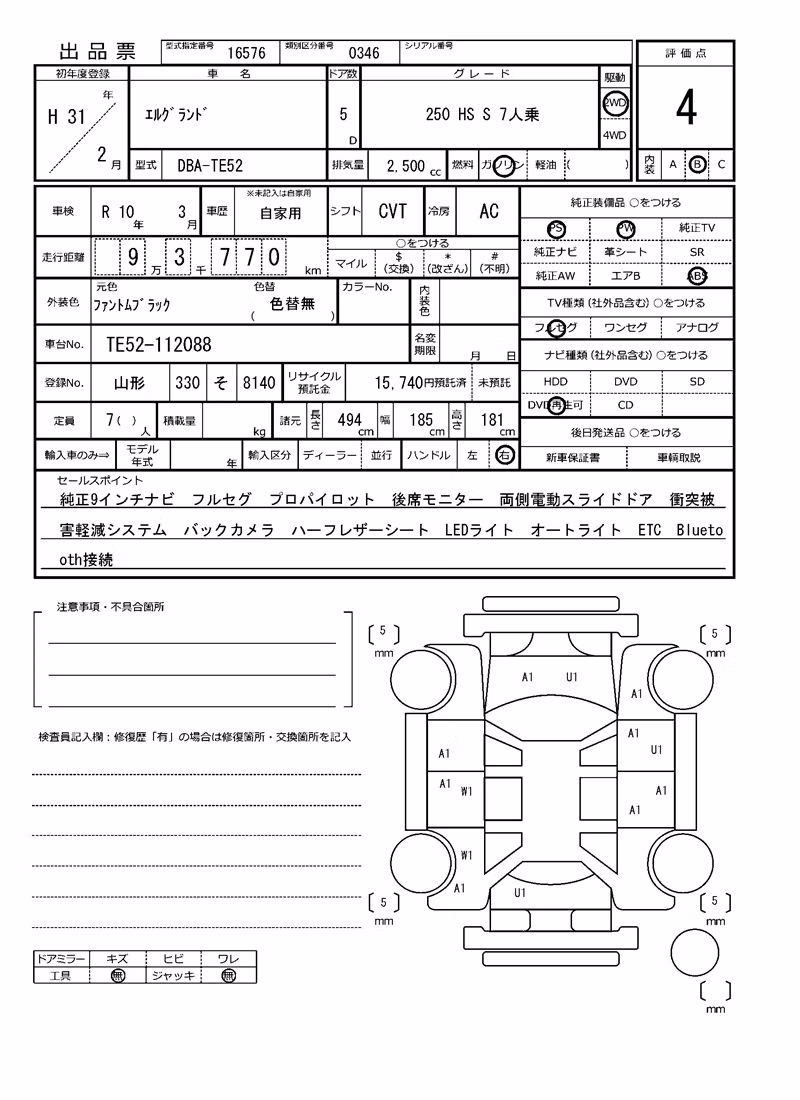 出品票 型式指定番号 16576 類別区分番号 0346 シリアル番号
評価点
4
内装 A B C
初年度登録 車名 ドア数 グレード 駆動
H 31 年 2 月 ｴﾙｸﾞﾗﾝﾄﾞ 5 D 250 HS S 7人乗 2WD
4WD
型式 DBA-TE52 排気量 2,500 cc 燃料 ガソリン 軽油 ( )
車検 R 10 年 3 月 車歴 ※未記入は自家用 自家用 シフト CVT 冷房 AC
走行距離 9 万 3 千 7 7 0 km ○をつける
マイル $ (交換) * (改ざん) # (不明)
外装色 元色 ﾌｧﾝﾄﾑﾌﾞﾗｯｸ 色替 ( 色替無 ) カラーNo. 内装色
車台No. TE52-112088 名変期限 月 日
登録No. 山形 330 そ 8140 リサイクル預託金 15,740円預託済 未預託
定員 7( ) 人 積載量 kg 諸元 長さ 494 cm 幅 185 cm 高さ 181 cm
輸入車のみ⇒ モデル年式 年 輸入区分 ディーラー 並行 ハンドル 左 右
純正装備品 ○をつける
PS PW 純正TV
純正ナビ 革シート SR
純正AW エアB ABS
TV種類(社外品含む) ○をつける
フルセグ ワンセグ アナログ
ナビ種類(社外品含む) ○をつける
HDD DVD SD
DVD再生可 CD
後日発送品 ○をつける
新車保証書 車輌取説
セールスポイント
純正9インチナビ フルセグ プロパイロット 後席モニター 両側電動スライドドア 衝突被
害軽減システム バックカメラ ハーフレザーシート LEDライト オートライト ETC Blueto
oth接続
注意事項・不具合箇所
検査員記入欄：修復歴「有」の場合は修復箇所・交換箇所を記入
ドアミラー キズ ヒビ ワレ
工具 無 ジャッキ 無
5 mm
5 mm
A1 U1
A1
A1 U1
A1
A1 W1
A1
A1
W1
A1
U1
5 mm
5 mm
mm